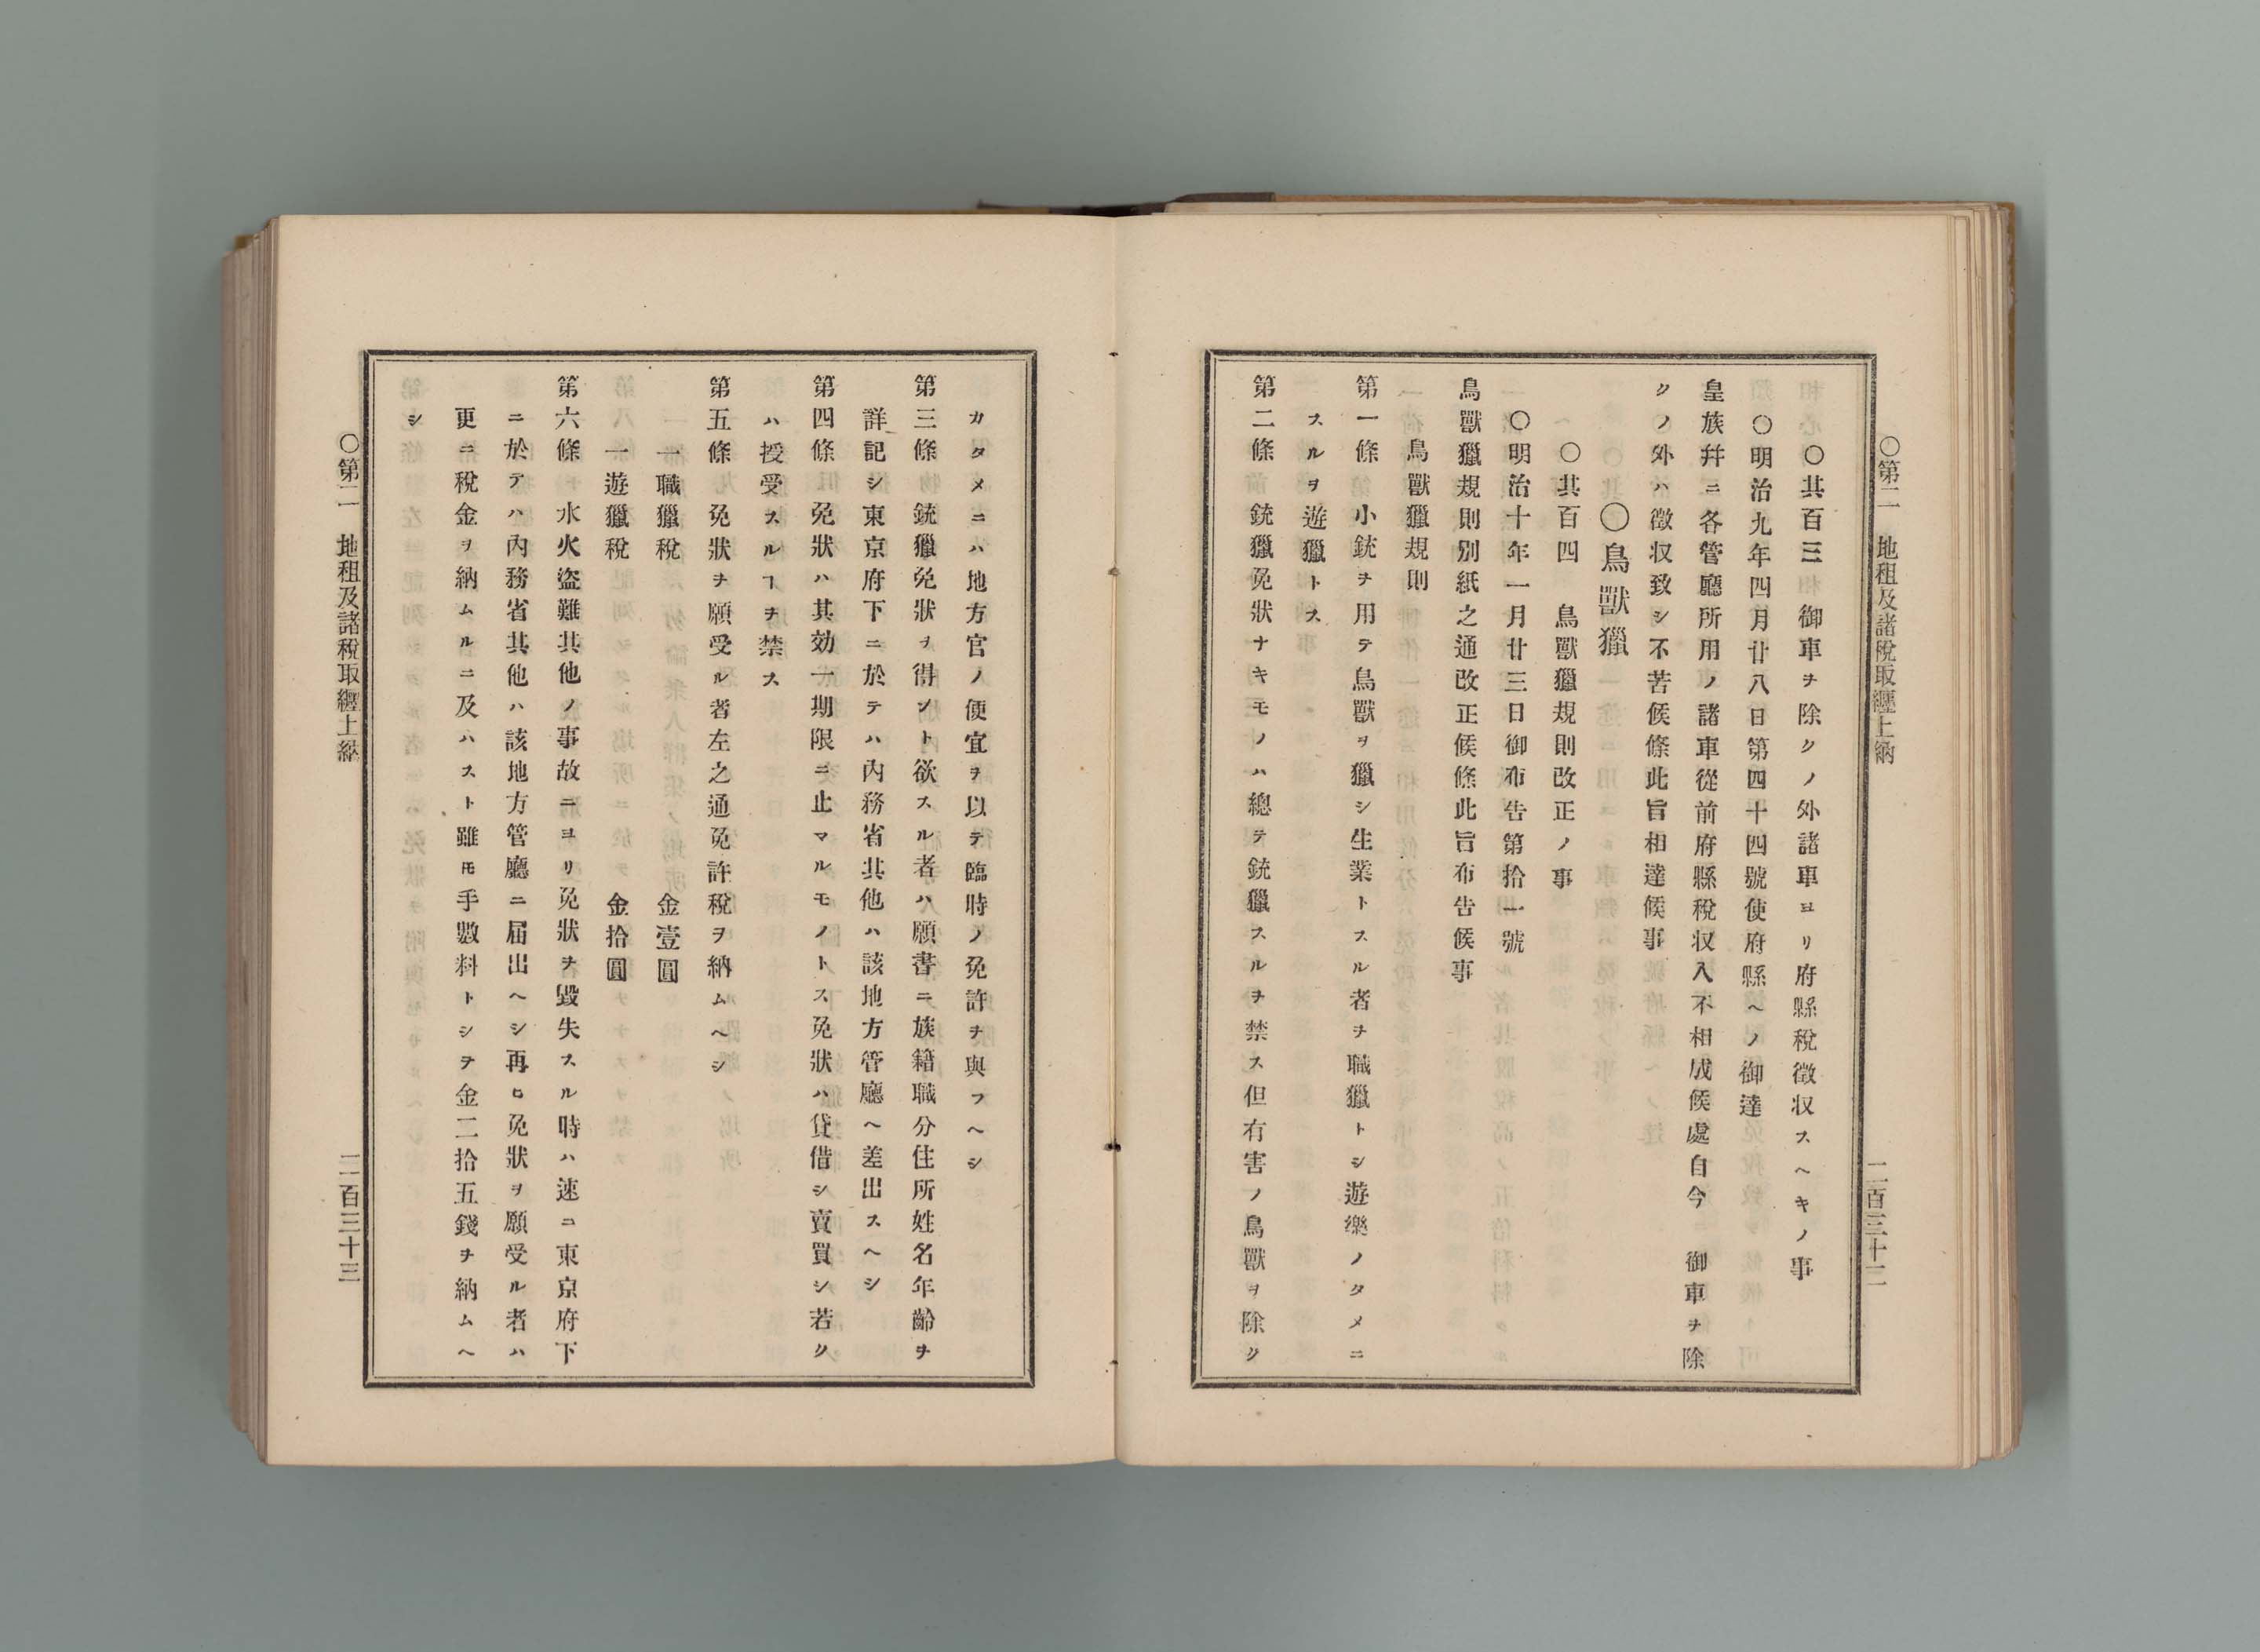 〇第二　地租及諸稅取纒上納　二百三十二
〇其百三　御車ヲ除クノ外諸車ヨリ府縣稅徵収スヘキノ事
〇明治九年四月廿八日第四十四號使府縣ヘノ御達
皇族幷ニ各管廳所用ノ諸車從前府縣稅収入不相成候處自今　御車ヲ除
クノ外ハ徵収致シ不苦候條此旨相達候事
〇鳥獸獵
〇其百四　鳥獸獵規則改正ノ事
〇明治十年一月廿三日御布告第拾一號
鳥獸獵規則別紙之通改正候條此旨布告候事
鳥獸獵規則
第一條　小銃ヲ用テ鳥獸ヲ獵シ生業トスル者ヲ職獵トシ遊樂ノタメニ
スルヲ遊獵トス
第二條　銃獵免狀ナキモノハ總テ銃獵スルヲ禁ス但有害ノ鳥獸ヲ除ク
カタメニハ地方官ノ便宜ヲ以テ臨時ノ免許ヲ與フヘシ
第三條　銃獵免狀ヲ得ント欲スル者ハ願書ニ族籍職分住所姓名年齡ヲ
詳記シ東京府下ニ於テハ內務省其他ハ該地方管廳ヘ差出スヘシ
第四條　免狀ハ其効一期限ニ止マルモノトス免狀ハ貸借シ賣買シ若ク
ハ授受スルヿヲ禁ス
第五條　免狀ヲ願受ル者左之通免許稅ヲ納ムヘシ
一職獵稅　金壹圓
一遊獵稅　金拾圓
第六條　水火盜難其他ノ事故ニヨリ免狀ヲ毀失スル時ハ速ニ東京府下
ニ於テハ內務省其他ハ該地方管廳ニ届出ヘシ再ヒ免狀ヲ願受ル者ハ
更ニ稅金ヲ納ムルニ及ハスト雖モ手數料トシテ金二拾五錢ヲ納ムヘ
シ
〇第二　地租及諸稅取纒上納　二百三十三